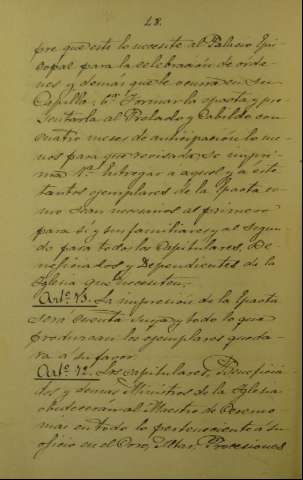 28.
pre que este lo necesite al Palacio Epis-
copal para la celebracion de orde-
nes y demás que le ocurra en su
Capilla: 6º Formar la epacta y pre-
sentarla al Prelado y Cabildo con
cuatro meses de anticipación lo me-
nos para que revisada, se impri-
ma 7ª Entregar a aquel y a este
tantos ejemplares de la Epacta co-
mo sean necesarios al primero
para sí y sus familiares y al segun-
do para todos los Capitulares, Be-
neficiados y Dependientes de la
Iglesia que necesiten.
La impresion de la Epacta
será cuenta suya y todo lo que
produzcan los ejemplares queda-
ra a su favor
Artº 72. Los capitulares, Beneficia-
dos y demas Ministros de la Iglesia
obedeceran al Maestro de Ceremo-
nias en todo lo perteneciente a su
oficio en el Coro, Altar, Procesiones